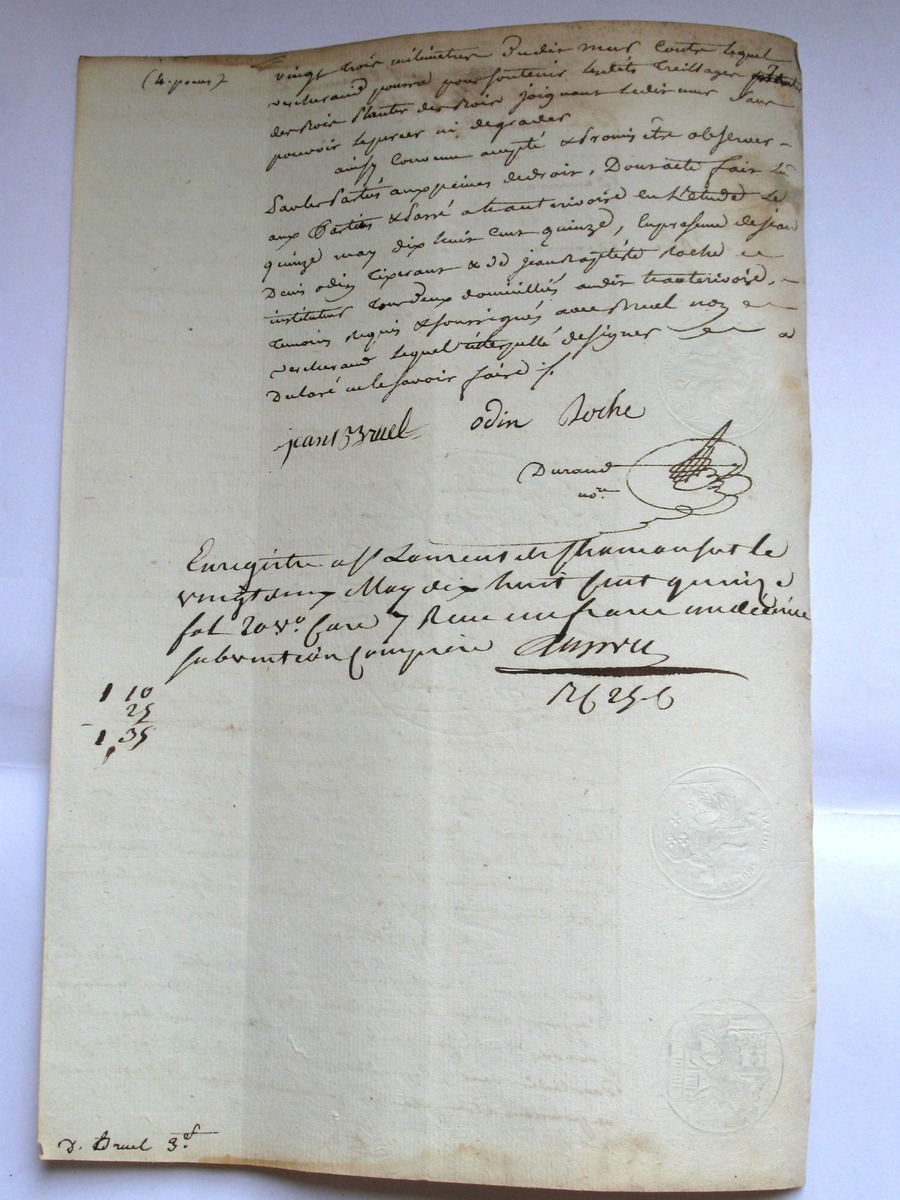 (4. pouces)
vingt trois milimetres dudit mur contre lequel
vercherand pourra pour soutenir lesdits treillages
des bois planter des bois joignant ledit mur sans
pouvoir le percer ni degrader
ainsy convenu accepté & promis être observer -
Par les Parties aux peines de droit, Dont acte fait lû
aux Parties & Passé a hauterivoire en L'étude Le
quinze may dix huit cent quinze, En presence de jean
Denis odin Tixerant & de jean baptiste Roche
instituteur tous deux domiciliés audit hauterivoire, -
temoins requis & soussignés avec Bruel non
vercherand lequel interpellé de signer a
Declaré ne le savoir faire ./.
jean Bruel odin Roche
Durand
no.re
Enregistré a St Laurent de Chamousset le
vingt deux May dix huit cent quinze
fol 20 v.o Case 7 Recu un franc un décime
subvention Comprise
1 10
25
1, 35
R f 25 c
D. Bruel 3.f